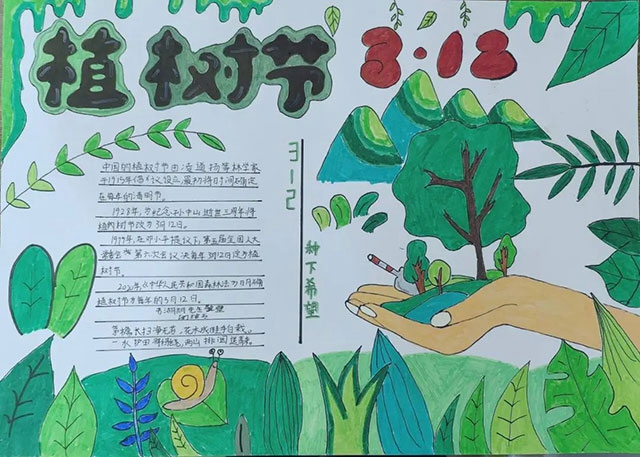 植树节 3·12
中国的植树节由凌道扬等林学家
于1915年倡议设立,最初将时间确定
在每年的清明节。
1928年,为纪念孙中山逝世三周年,将
植树节改为3月12日。
1979年,在邓小平提议下,第五届全国人大
常委会第六次会议决每年3月12日定为植
树节。
2020年《中华人民共和国森林法》明确
植树节为每年的3月12日。
书湖阴先生壁
茅檐长扫净无苔,花木成畦手自栽。
一水护田将绿绕,两山排闼送青来。
3-12
种下希望